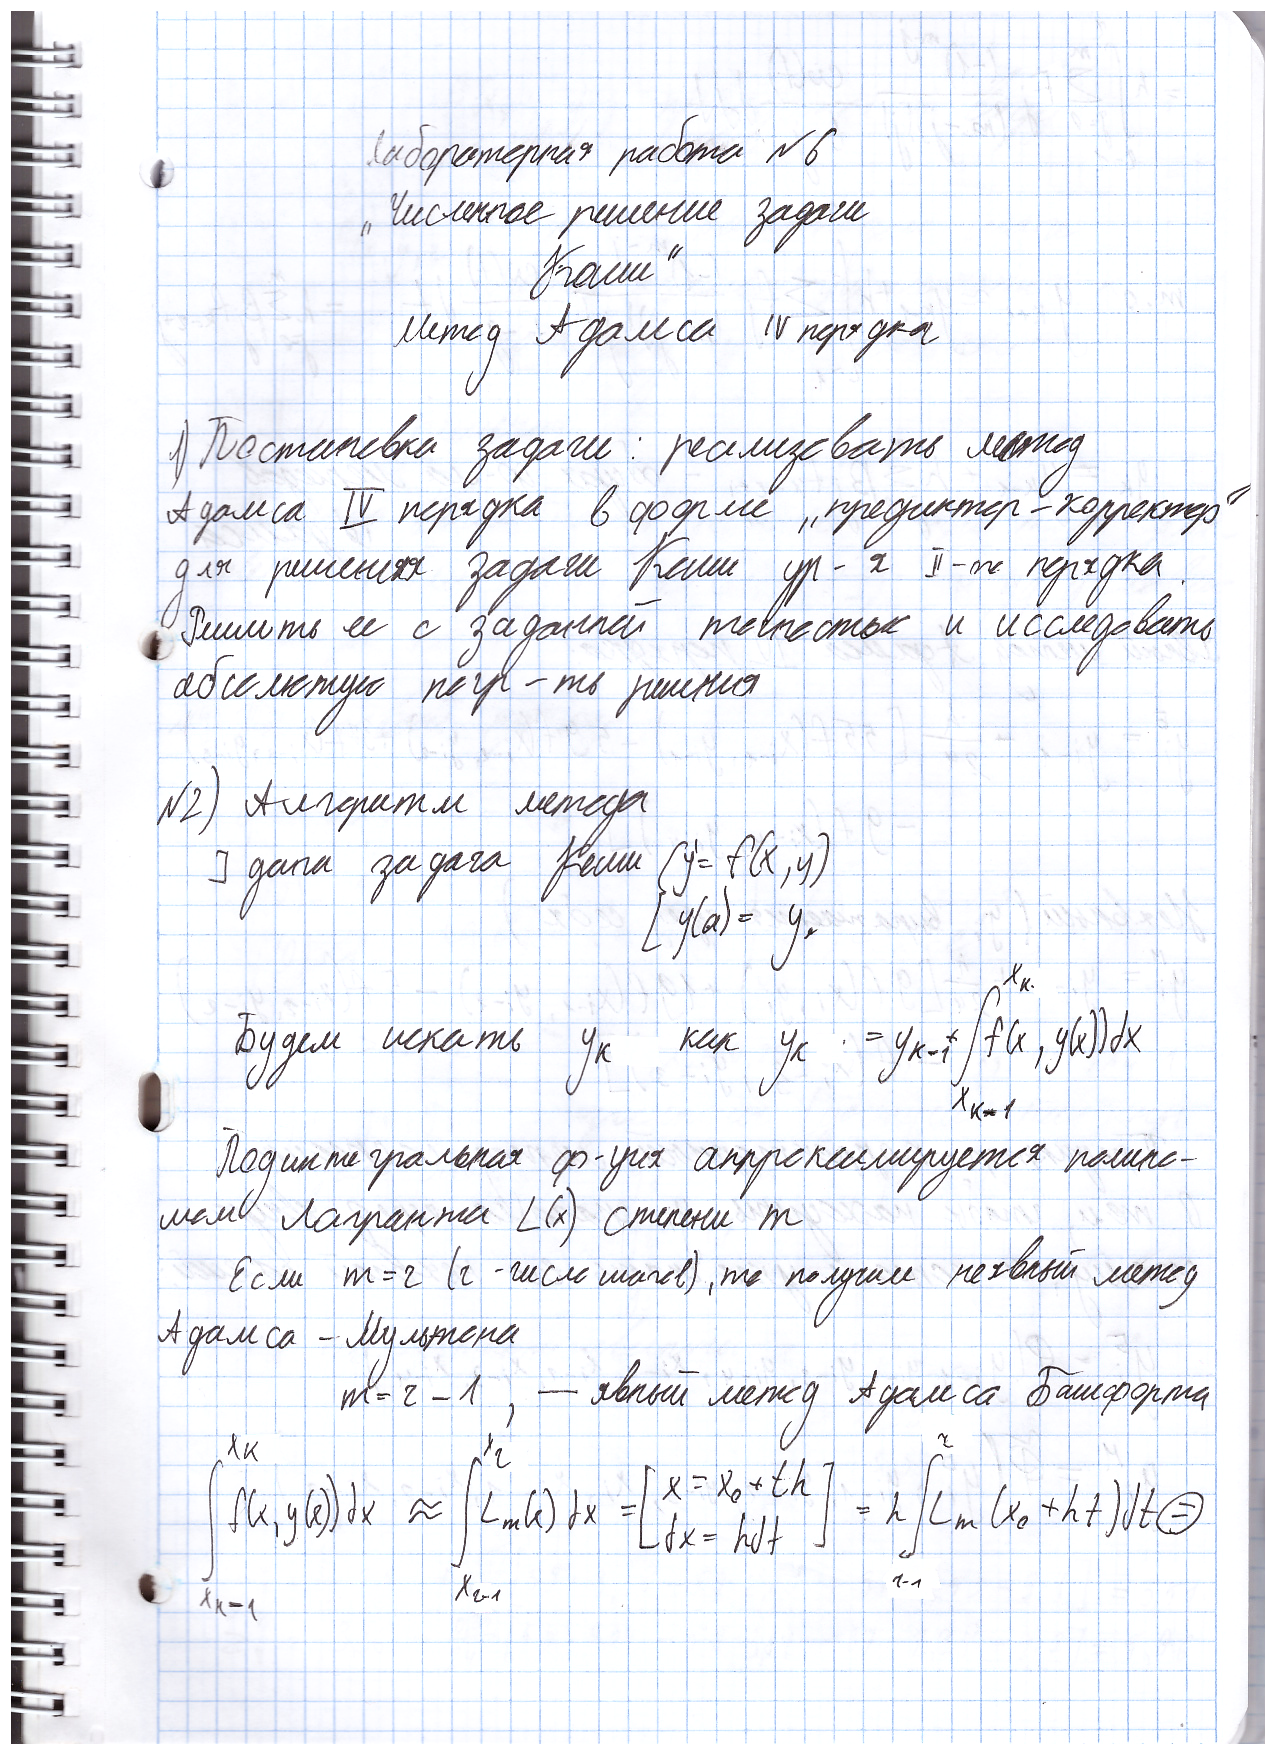 Лабораторная работа №6
„Численное решение задачи
Коши“
Метод Адамса IV порядка
1) Постановка задачи: реализовать метод
Адамса IV порядка в форме „предиктор-корректор“
для решения задачи Коши ур-я II-го порядка.
Решить ее с заданной точностью и исследовать
абсолютную погр-ть решения
№2) Алгоритм метода
] дана задача Коши { y' = f(x, y)
[ y(a) = y₀
Будем искать yₖ как yₖ = yₖ₋₁ + ∫ₓₖ₋₁^xₖ f(x, y(x))dx
Подинтегральная ф-ция аппроксимируется полино-
мом Лагранжа L(x) степени m
Если m=r (r - число шагов), то получим неявный метод
Адамса - Мультона
m=r-1, — явный метод Адамса Башфорта
∫ₓₖ₋₁^xₖ f(x, y(x))dx ≈ ∫_{x_{r-1}}^{x_r} Lₘ(x)dx = [x = x₀ + th; dx = hdt] = h ∫_{r-1}^{r} Lₘ(x₀ + ht)dt ⊜